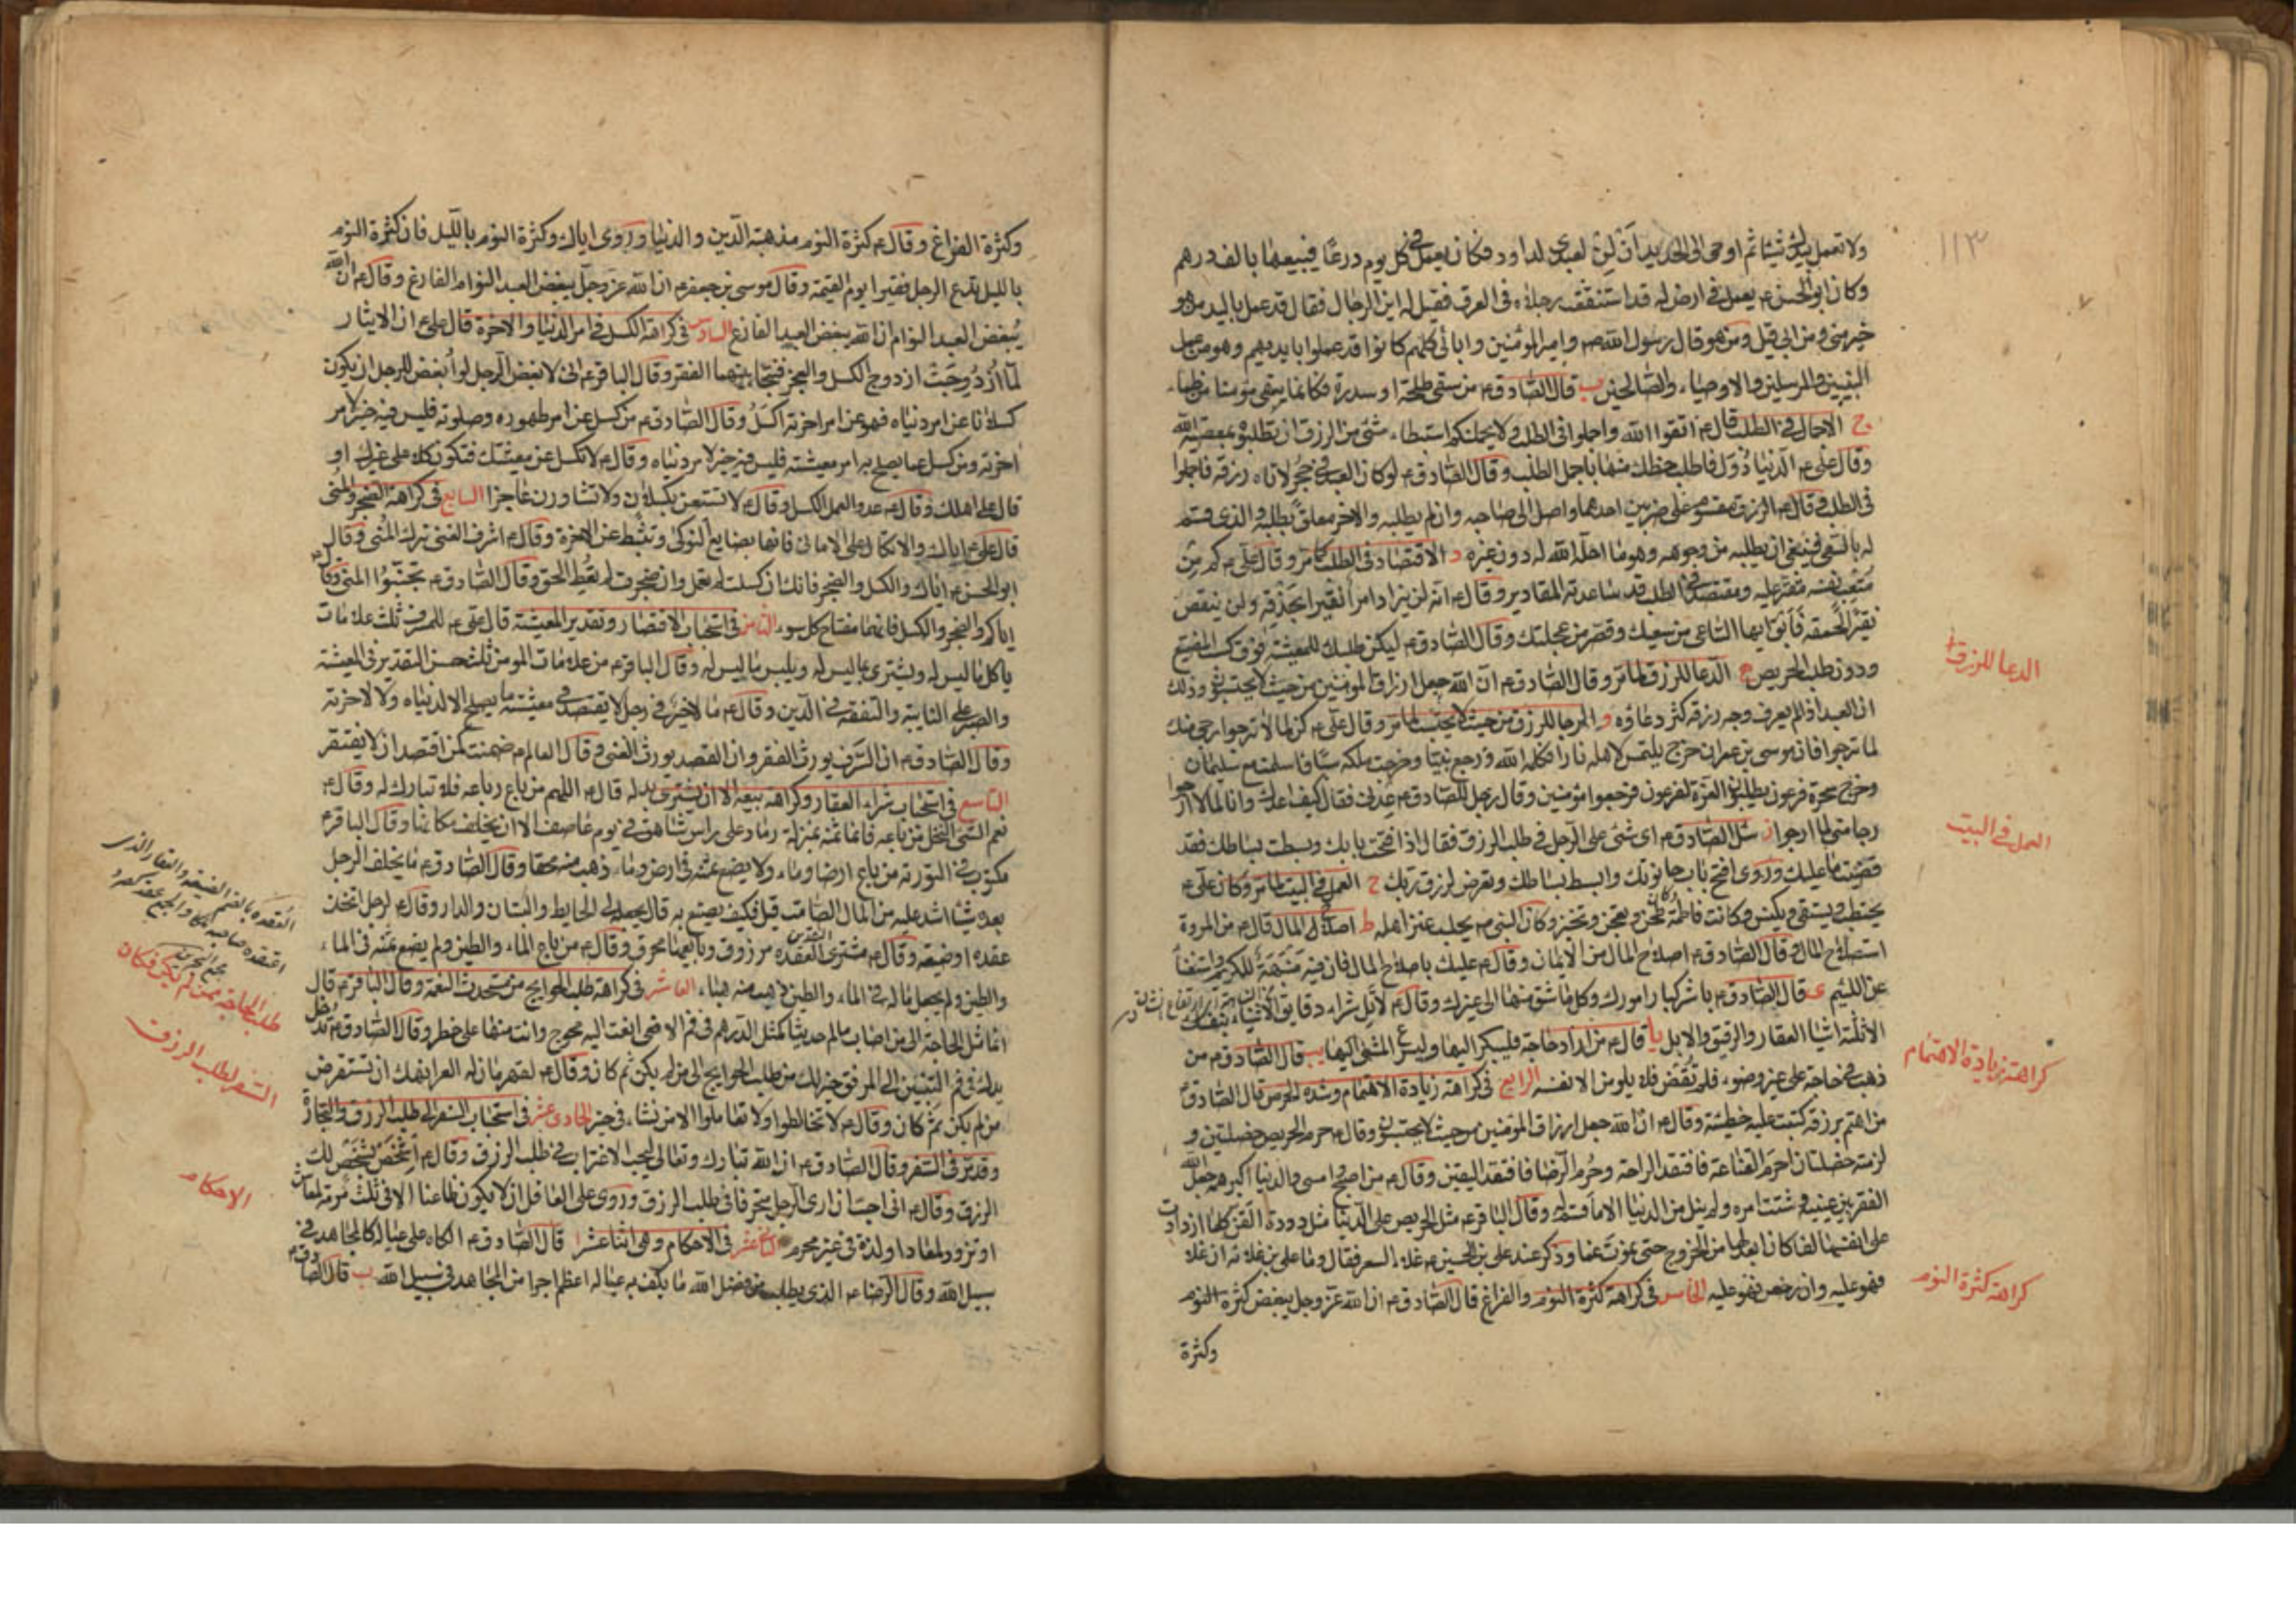 ١١٣
ولا تعمل بيدك شيئا ثم اوحى الى الحديد ان لن لعبدى لداود فكان يعمل فى كل يوم درعا فيبيعها بالف درهم
وكان ابو الحسن ع يعمل فى ارض له قد استنقعت رجلاه فى العرق فقيل له اين الرجال فقال قد عمل باليد من هو
خير منى ومن ابى قيل ومن هو قال رسول الله ص وامير المؤمنين وابائى كلهم كانوا قد عملوا بايديهم وهو من عمل
النبيين والمرسلين والاوصياء والصالحين ب قال الصادق ع من سقى طلحة او سدرة فكانما سقى مؤمنا من ظماء
ج الاجمال فى الطلب قال ع اتقوا الله واجملوا فى الطلب ولا يحملنكم استبطاء شئ من الرزق ان تطلبوه بمعصية الله
وقال على ع الدنيا دول فاطلب حظك منها باجمل الطلب وقال الصادق ع لو كان العبد فى حجر لاتاه رزقه فاجملوا
فى الطلب وقال ع الرزق مقسوم على ضربين احدهما واصل الى صاحبه وان لم يطلبه والاخر معلق بطلبه والذى قسم
له بالسعى فينبغى ان يطلبه من وجوهه وهو ما احله الله له دون غيره د الاقتصاد فى الطلب لما مر وقال على ع كم من
متعب نفسه مقتر عليه ومقتصد فى الطلب قد ساعدته المقادير وقال ع انه لن يزداد امرأ نقيرا بحذقه ولن ينقص
نقيرا لحمقه فابق ايها الساعى من سعيك وقصر من عجلتك وقال الصادق ع ليكن طلبك للمعيشة فوق كسب المضيع
ودون طلب الحريص ه الدعا للرزق لما مر وقال الصادق ع ان الله جعل ارزاق المؤمنين من حيث لا يحتسبون وذلك
ان العبد اذا لم يعرف وجه رزقه كثر دعاؤه و الرجا للرزق من حيث لا يحتسب لما مر وقال على ع كن لما لا ترجو ارجى منك
لما ترجو فان موسى بن عمران خرج يلتمس لاهله نارا فكلمه الله ورجع نبيا وخرجت ملكة سبا فاسلمت مع سليمان
وخرج سحرة فرعون يطلبون العزة لفرعون فرجعوا مؤمنين وقال رجل للصادق ع عدنى فقال كيف اعدك وانا لما لا ارجوا
رجا منى لما ارجو ز سئل الصادق ع اى شئ على الرجل فى طلب الرزق فقال اذا فتحت بابك وبسطت بساطك فقد
قضيت ما عليك وروى افتح باب حانوتك وابسط بساطك وتعرض لرزق ربك ح العمل فى البيت لما مر وكان على ع
يحتطب ويستقى ويكنس وكانت فاطمة تطحن وتعجن وتخبز وكان النبى ص يحلب عنز اهله ط اصلاح المال قال ع من المروة
استصلاح المال وقال الصادق ع اصلاح المال من الايمان وقال ع عليك باصلاح المال فان فيه منبهة للكريم واستغنأ
عن اللئيم ى قال الصادق ع باشر كبار امورك وكل ما شق منها الى غيرك وقال ع لا تل شراء دقايق الاشياء بنفسك
الا ثلثة اشيا العقار والرقيق والابل يا قال ع من اراد حاجة فليبكر اليها وليسرع المشى اليها يب قال الصادق ع من
ذهب فى حاجة على غير وضوء فلم تقض فلا يلومن الا نفسه الرابع فى كراهة زيادة الاهتمام وشدة الحرص قال الصادق ع
من اهتم برزقه كتبت عليه خطيئة وقال ع ان الله جعل ارزاق المؤمنين من حيث لا يحتسبون وقال ع حرم الحريص خصلتين و
لزمته خصلتان احرم القناعة فافتقد الراحة وحرم الرضا فافتقد اليقين وقال ع من اصبح وامسى والدنيا اكبر همه جعل الله
الفقر بين عينيه وشتت امره ولم ينل من الدنيا الا ما قسم له وقال الباقر ع مثل الحريص على الدنيا مثل دودة القز كلما ازدادت
على نفسها لفا كان ابعد لها من الخروج حتى تموت غما وذكر عند على بن الحسين ع غلاء السعر فقال وما على من غلائه ان غلا
فهو عليه وان رخص فهو عليه الخامس فى كراهة كثرة النوم والفراغ قال الصادق ع ان الله عز وجل يبغض كثرة النوم
وكثرة
الدعا للرزق
العمل فى البيت
كراهة زيادة الاهتمام
كراهة كثرة النوم
وكثرة الفراغ وقال ع كثرة النوم مذهبة الدين والدنيا وروى اياك وكثرة النوم بالليل فان كثرة النوم
بالليل تدع الرجل فقيرا يوم القيمة وقال موسى بن جعفر ع ان الله عز وجل يبغض العبد النوام الفارغ وقال ع ان الله
يبغض العبد النوام ان الله يبغض العبد الفارغ السادس فى كراهة الكسل فى امر الدنيا والاخرة قال على ع ان الاشيا ر
لما ازدوجت ازدوج الكسل والعجز فنتجا بينهما الفقر وقال الباقر ع انى لابغض الرجل او ابغض للرجل ان يكون
كسلانا عن امر دنياه فهو عن امر اخرته اكسل وقال الصادق ع من كسل عن امر طهوره وصلوته فليس فيه خير لامر
اخرته ومن كسل عما يصلح به امر معيشته فليس فيه خير لامر دنياه وقال ع لا تكسل عن معيشتك فتكون كلا على غيرك او
قال على اهلك وقال ع عدو العمل الكسل وقال ع لا تستعن بكسلان ولا تشاورن عاجزا السابع فى كراهة الضجر والمنى
قال على ع اياك والاتكال على الامانى فانها بضايع النوكى وتثبط عن الاخرة وقال ع اشرف الغنى ترك المنى وقال
ابو الحسن ع اياك والكسل والضجر فانك ان كسلت لم تعمل وان ضجرت لم تعط الحق وقال الصادق ع تجنبوا المنى وقال ع
اياكم والضجر والكسل فانهما مفتاح كل سوء الثامن فى استحباب الاقتصار وتقدير المعيشة قال على ع للمسرف ثلث علامات
ياكل ما ليس له ويشترى ما ليس له ويلبس ما ليس له وقال الباقر ع من علامات المؤمن ثلث حسن التقدير فى المعيشة
والصبر على النايبة والتفقه فى الدين وقال ع ما لاخير فى رجل لا يقتصد فى معيشته ما يصلح لا لدنياه ولا لاخرته
وقال الصادق ع ان السرف يورث الفقر وان القصد يورث الغنى وقال العالم ع ضمنت لمن اقتصد ان لا يفتقر
التاسع فى استحباب شراء العقار وكراهة بيعه الا ان يشترى بدله قال ع اللهم من باع رباعه فلا تبارك له وقال ع
نعم الشئ النخل من باعه فانما ثمنه بمنزلة رماد على راس شاهق فى يوم عاصف الا ان يخلف مكانها وقال الباقر ع
مكتوب فى التورية من باع ارضا وماء ولا يضع ثمنه فى ارض وماء ذهب منه محقا وقال الصادق ع ما يخلف الرجل
بعده شيئا اشد عليه من المال الصامت قيل فكيف يصنع به قال يجعله فى الحايط والبستان والدار وقال ع لرجل اتخذ
عقدة او ضيعة وقال ع مشترى العقدة مرزوق وبايعها محرق وقال ع من باع الماء والطين ولم يضع ثمنه فى الماء
والطين ولم يجعل ماله فى الماء والطين ذهب منه هباء العاشر فى كراهة طلب الحوايج من مستحدث النعمة وقال الباقر ع قال
انما مثل الحاجة الى من اصاب ماله حديثا كمثل الدرهم فى فم الافعى انت اليه محوج وانت منها على خطر وقال الصادق ع تدخل
يدك فى فم التنين الى المرفق خير لك من طلب الحوايج الى من لم يكن ثم كان وقال ع لقهرمان له اياك ان تستقرض
من لم يكن ثم كان وقال ع لا تخالطوا ولا تعاملوا الا من نشاء فى خير الحادى عشر فى استحباب السفر فى طلب الرزق والتجارة
وقد مر فى السفر وقال الصادق ع ان الله تبارك وتعالى ليحب الاغتراب فى طلب الرزق وقال ع اشخص يشخص لك
الرزق وقال ع انى احب ان ارى الرجل متحرفا فى طلب الرزق وروى على العاقل ان لا يكون ظاعنا الا فى ثلث مرمة لمعاش
او تزود لمعاد او لذة فى غير محرم الثانى عشر فى الاحكام وهى اثنا عشر ا قال الصادق ع الكاد على عياله كالمجاهد فى
سبيل الله وقال الرضا ع الذى يطلب من فضل الله ما يكف به عياله اعظم اجرا من المجاهد فى سبيل الله ب قال الصادق ع
العقدة بالضم الضيعة والعقار الذى
اعتقده صاحبه ملكا والجمع عقد كصرد
مجمع البحرين
طلب الحاجة ممن لم يكن فكان
السفر لطلب الرزق
الاحكام